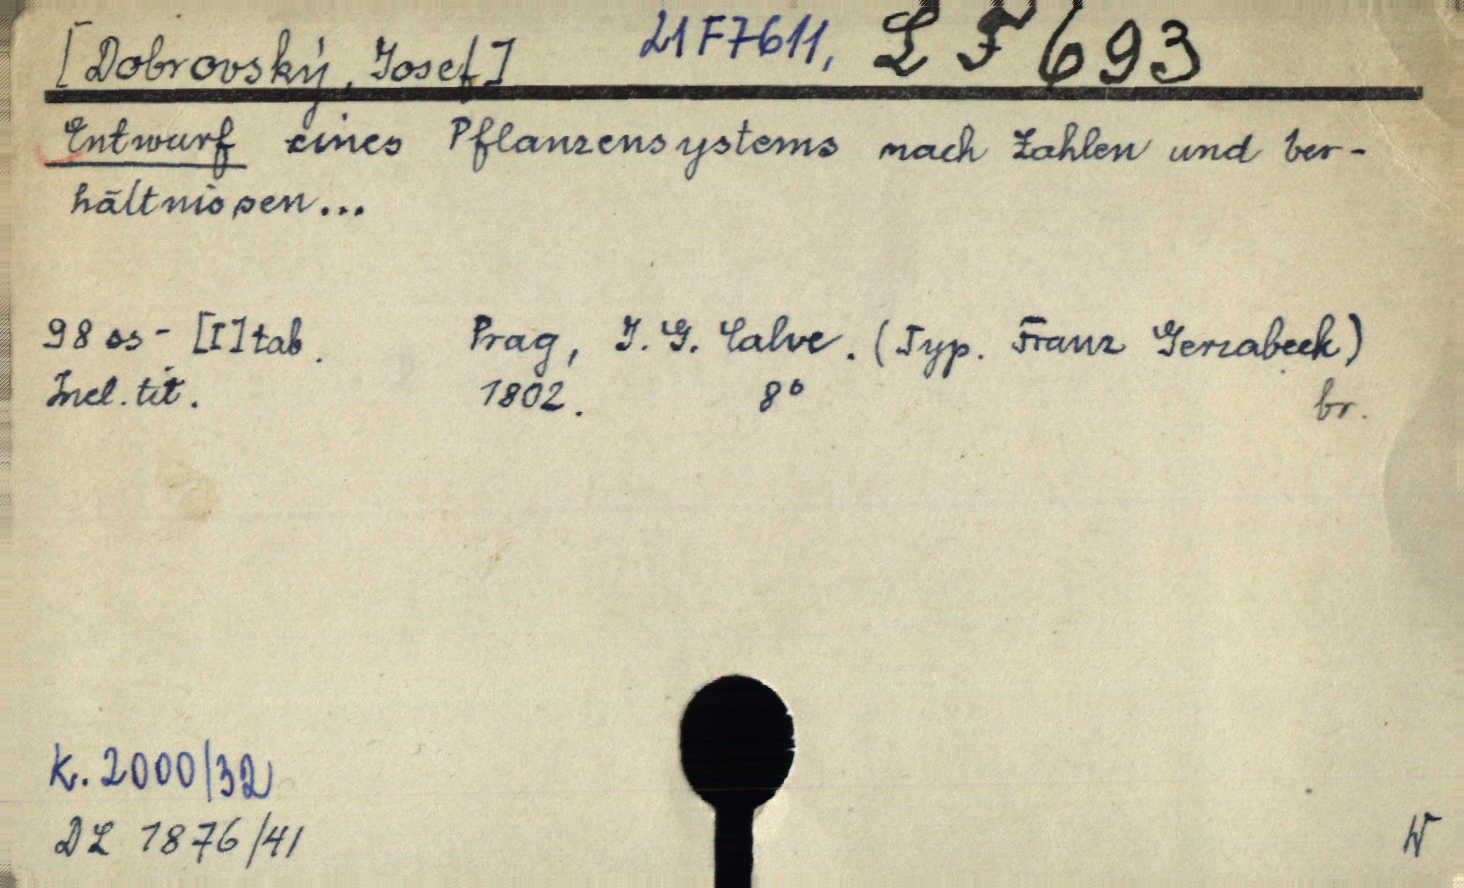 [Dobrovský, Josef] 21 F 7611, L F 693
Entwurf eines Pflanzensystems nach Zahlen und Ver-
hältnissen...
98 ss - [I] tab. Prag, J. G. Calve. (Typ. Franz Gerzabeck)
Incl. tit. 1802. 8° br.
K. 2000/32
DL 1876/41
W